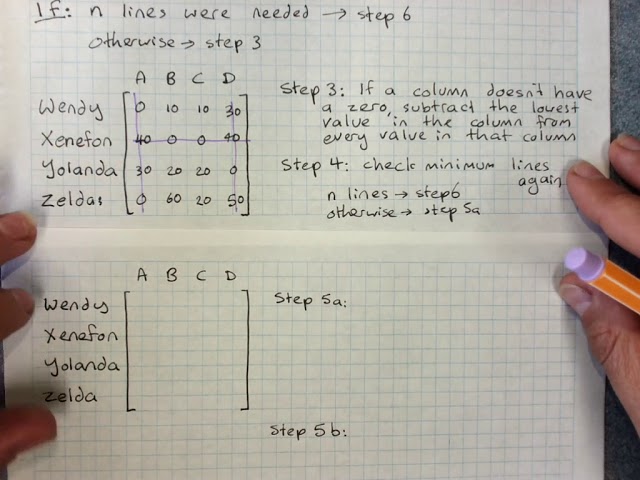 If: n lines were needed → step 6
otherwise → step 3
A B C D
Wendy 0 10 10 30
Xenefon 40 0 0 40
Yolanda 30 20 20 0
Zeldas 0 60 20 50
Step 3: If a column doesn't have
a zero, subtract the lowest
value in the column from
every value in that column
Step 4: check minimum lines
again
n lines → step 6
otherwise → step 5a
A B C D
Wendy
Xenefon
Yolanda
Zelda
Step 5a:
Step 5b: